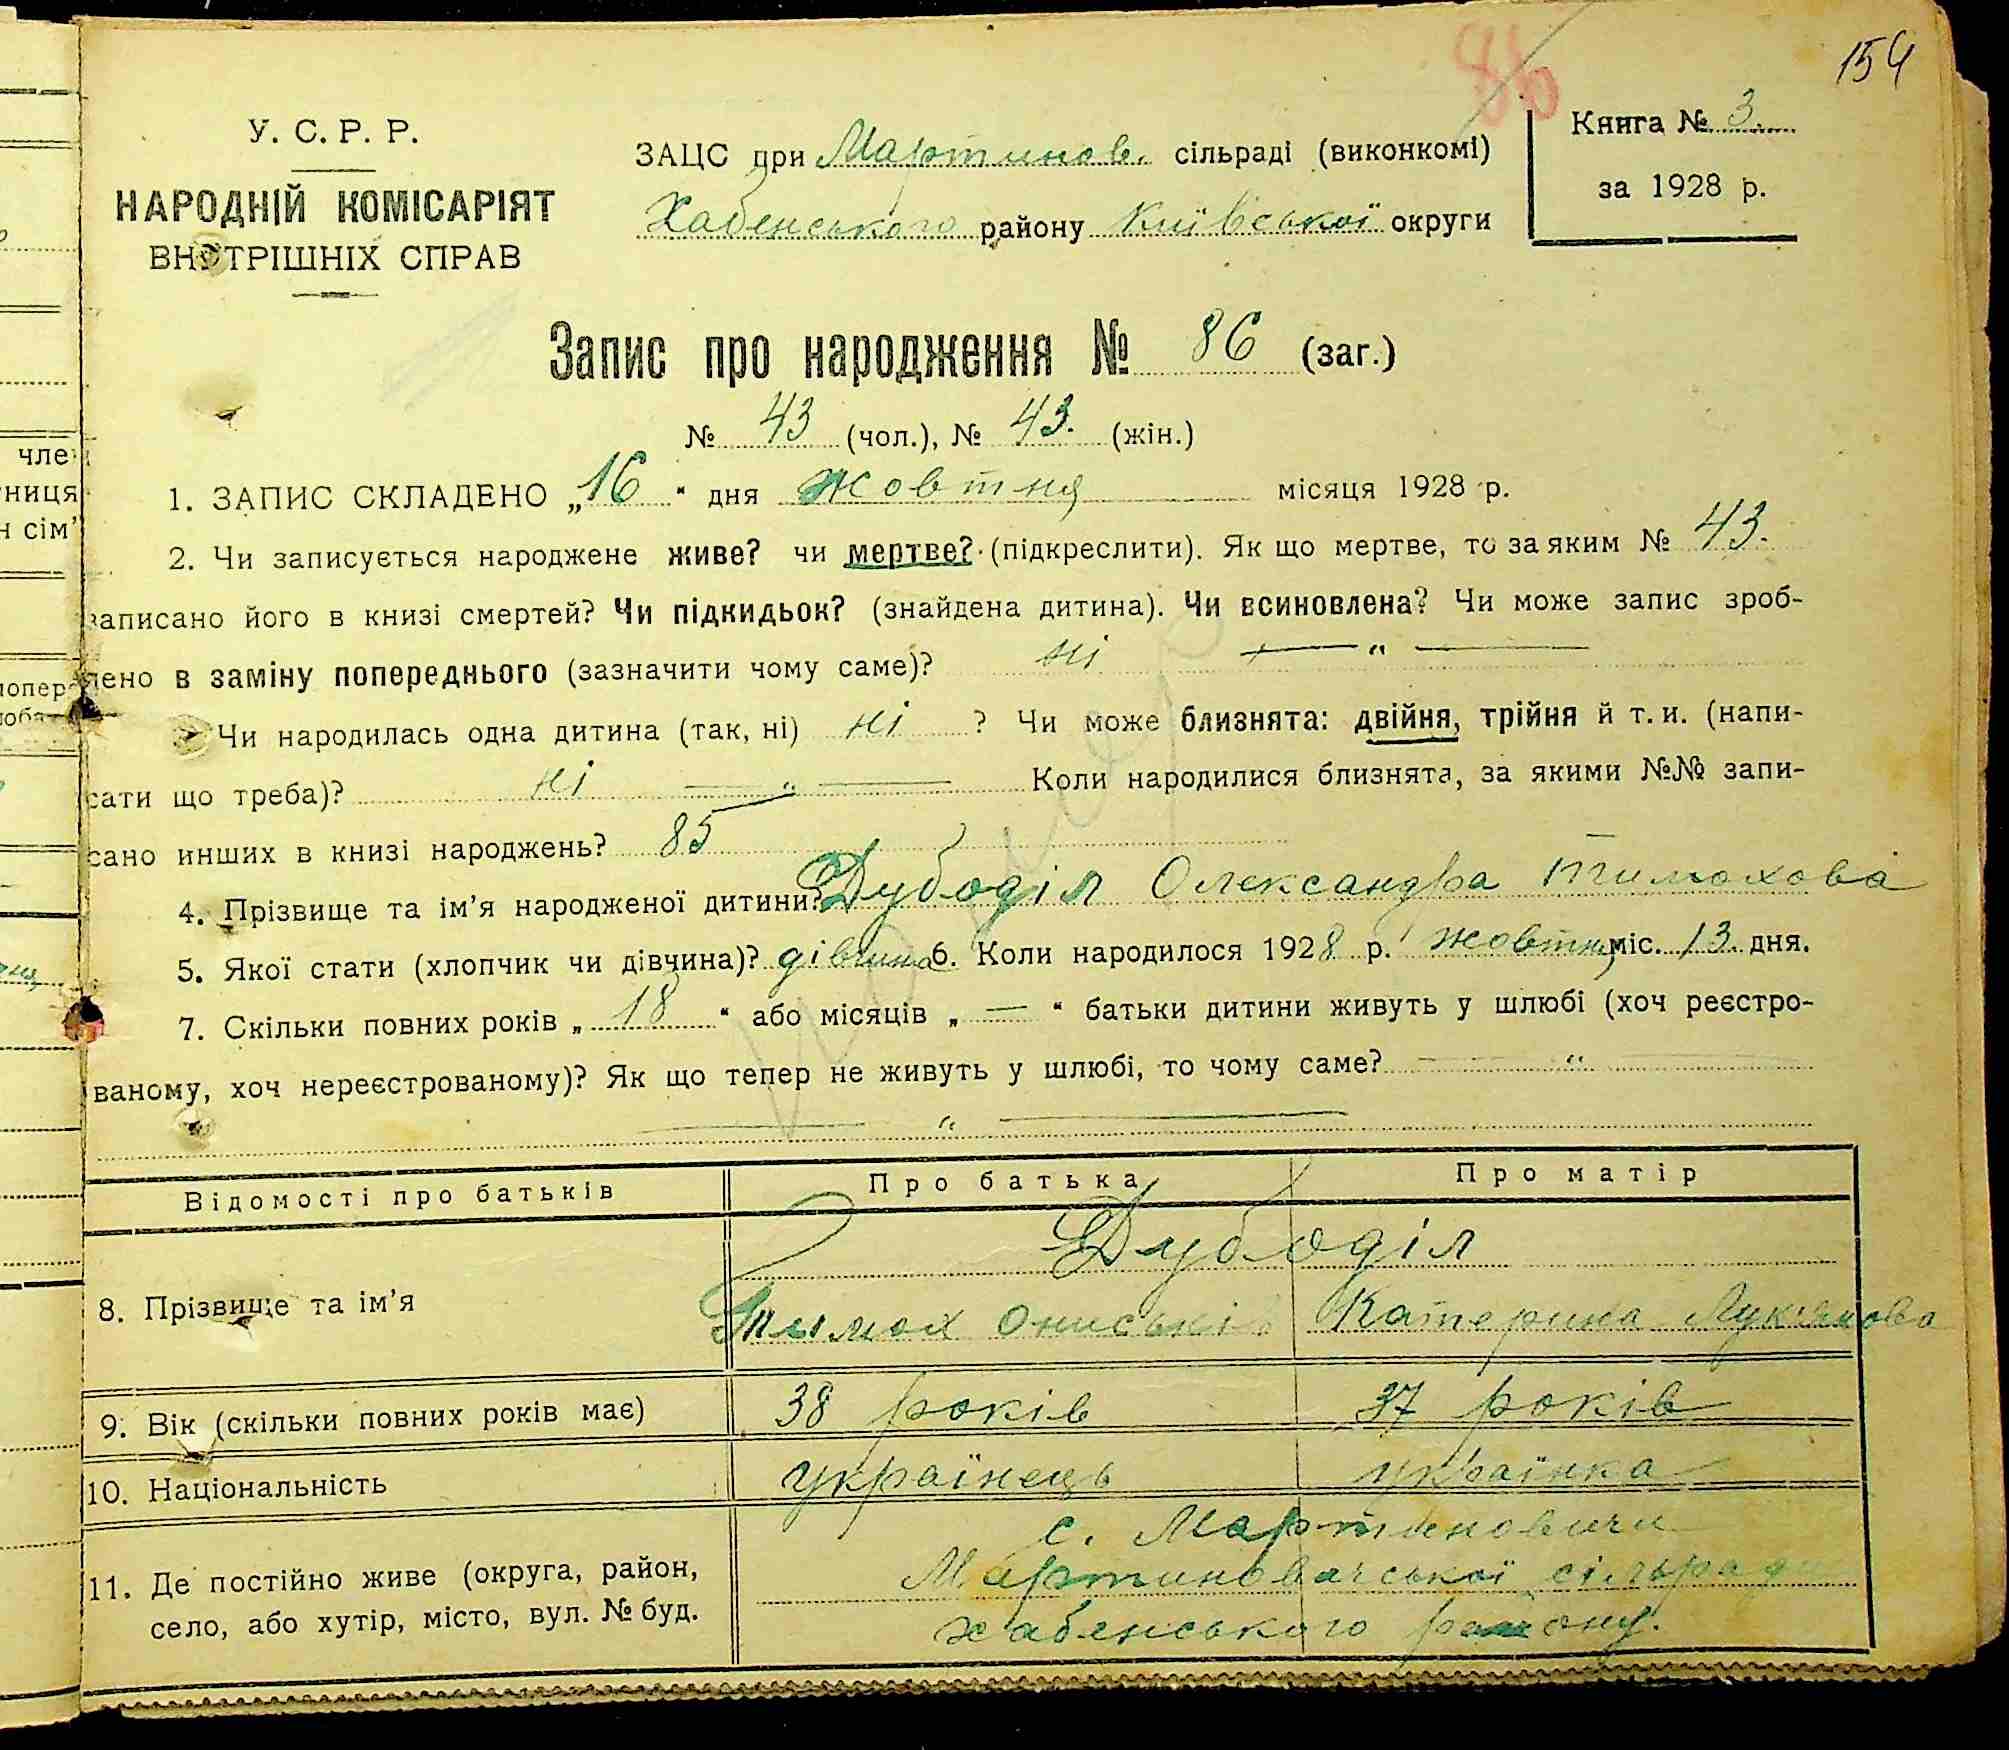 154
86
У. С. Р. Р.
НАРОДНІЙ КОМІСАРІЯТ
ВНУТРІШНІХ СПРАВ
ЗАЦС при Мартинов. сільраді (виконкомі)
Хабенського району Київської округи
Книга № 3
за 1928 р.
Запис про народження № 86 (заг.)
№ 43 (чол.), № 43. (жін.)
1. ЗАПИС СКЛАДЕНО „16“ дня жовтня місяця 1928 р.
2. Чи записується народжене живе? чи мертве? (підкреслити). Як що мертве, то за яким № 43.
записано його в книзі смертей? Чи підкидьок? (знайдена дитина). Чи всиновлена? Чи може запис зроб-
лено в заміну попереднього (зазначити чому саме)? ні — „ —
Чи народилась одна дитина (так, ні) ні ? Чи може близнята: двійня, трійня й т. и. (напи-
сати що треба)? ні — „ — Коли народилися близнята, за якими №№ запи-
сано инших в книзі народжень? 85
4. Прізвище та ім’я народженої дитини? Дубоділ Олександра Тимохова
5. Якої стати (хлопчик чи дівчина)? дівчина 6. Коли народилося 1928 р. жовтня міс. 13 дня.
7. Скільки повних років „18“ або місяців „—“ батьки дитини живуть у шлюбі (хоч реєстро-
ваному, хоч нереєстрованому)? Як що тепер не живуть у шлюбі, то чому саме? — „
— „ —
Відомості про батьків Про батька Про матір
Дубоділ
8. Прізвище та ім’я Тимох Ониськів Катерина Лукянова
9. Вік (скільки повних років має) 38 років 37 років
10. Національність українець українка
с. Мартиновичи
11. Де постійно живе (округа, район, Мартиновичської сільради
село, або хутір, місто, вул. № буд. Хабенського району.